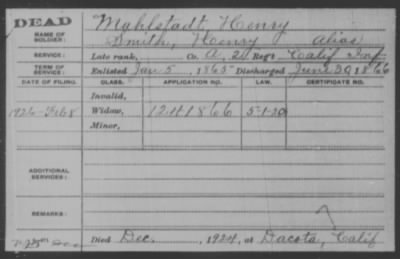 DEAD
NAME OF SOLDIER: Mahlstadt, Henry
Smith, Henry Alias
SERVICE: Late rank, Co. A, 2 Reg't Calif Inf
TERM OF SERVICE: Enlisted Jan 5, 1865 Discharged June 30, 1866
DATE OF FILING. CLASS. APPLICATION NO. LAW. CERTIFICATE NO.
Invalid,
1926-Feb 8 Widow, 1241866 5-1-20
Minor,
ADDITIONAL SERVICES:
REMARKS:
Died Dec. , 1924, at Dacota, Calif